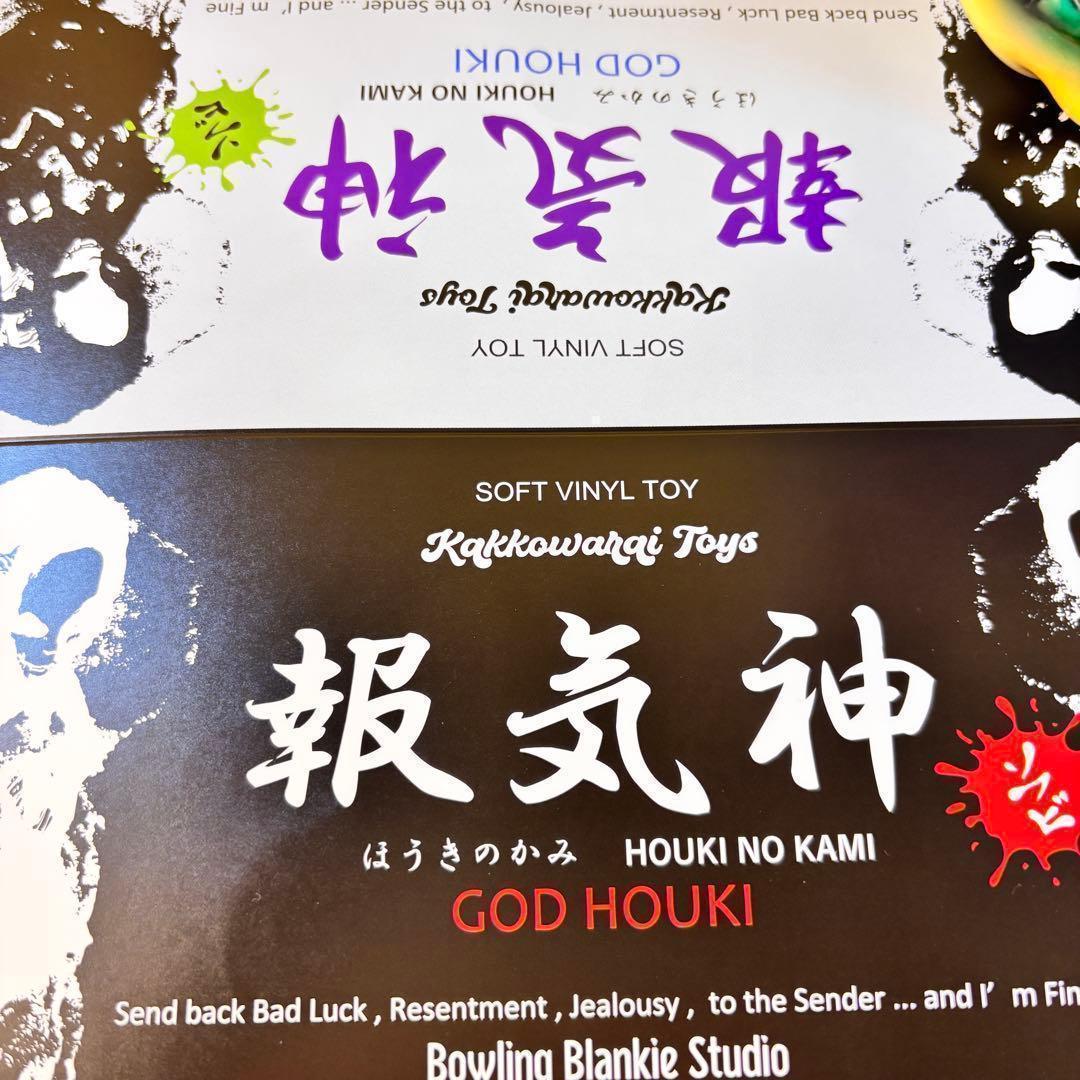 Send back Bad Luck , Resentment , Jealousy , to the Sender ... and I' m Fine
GOD HOUKI
ほうきのかみ HOUKI NO KAMI
報気神
Kakkowarai Toys
SOFT VINYL TOY
SOFT VINYL TOY
Kakkowarai Toys
報気神
ほうきのかみ HOUKI NO KAMI
GOD HOUKI
Send back Bad Luck , Resentment , Jealousy , to the Sender ... and I' m Fin
Bowling Blankie Studio